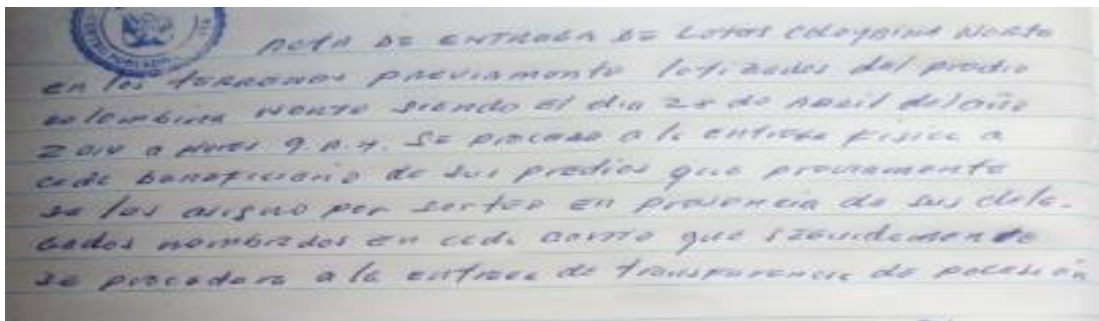 ACTA DE ENTREGA DE LOTES COLOMBINA NORTE
en los terrenos previamente lotizados del predio
colombina NORTE siendo el dia 28 de ABRIL del año
2014 a horas 9 A.M. SE procede a la entrega Fisica a
cada beneficiario de sus predios que previamente
se les asigno por sorteo en presencia de sus dele-
gados nombrados en cada barrio que seguidamente
se procedera a la entrega de transparencia de posesión